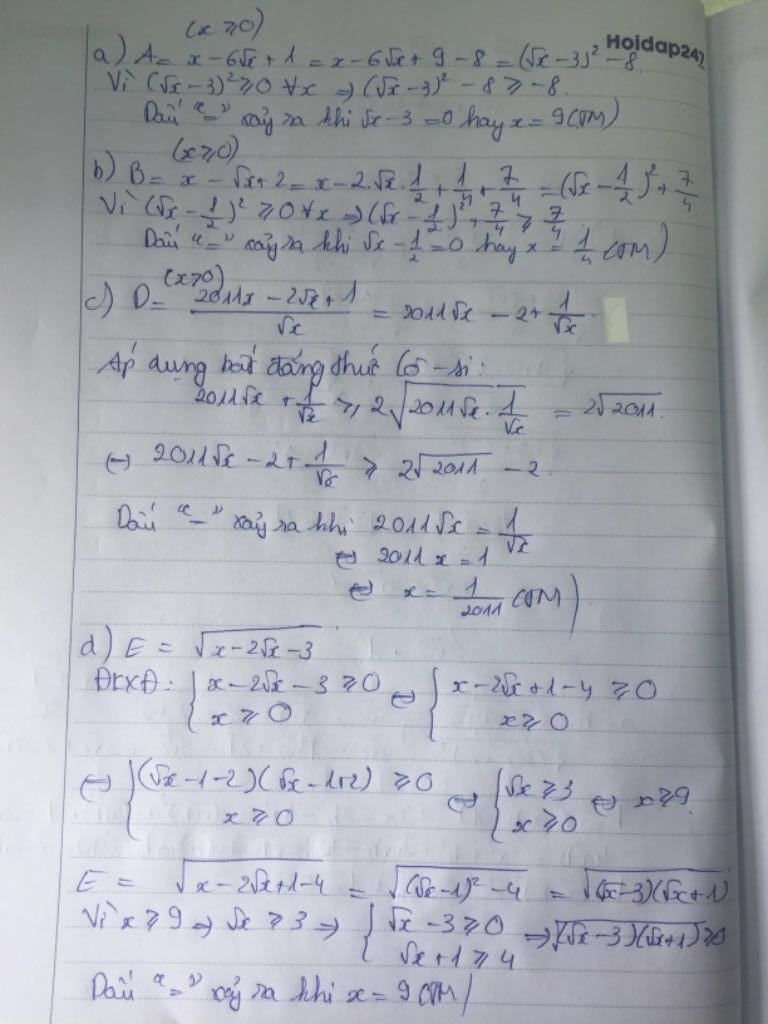 (x ≥ 0)
Hoidap247
a) A = x − 6√x + 1 = x − 6√x + 9 − 8 = (√x − 3)² − 8.
Vì (√x − 3)² ≥ 0 ∀x ⇒ (√x − 3)² − 8 ≥ −8.
Dấu "=" xảy ra khi √x − 3 = 0 hay x = 9 (TM)
(x ≥ 0)
b) B = x − √x + 2 = x − 2.√x . 1/2 + 1/4 + 7/4 = (√x − 1/2)² + 7/4
Vì (√x − 1/2)² ≥ 0 ∀x ⇒ (√x − 1/2)² + 7/4 ≥ 7/4
Dấu "=" xảy ra khi √x − 1/2 = 0 hay x = 1/4 (TM)
(x > 0)
c) D = (2011x − 2√x + 1)/√x = 2011√x − 2 + 1/√x.
Áp dụng bất đẳng thức Cô-si:
2011√x + 1/√x ≥ 2√(2011√x . 1/√x) = 2√2011.
⇔ 2011√x − 2 + 1/√x ≥ 2√2011 − 2
Dấu "=" xảy ra khi 2011√x = 1/√x
⇔ 2011x = 1
⇔ x = 1/2011 (TM)
d) E = √(x − 2√x − 3)
ĐKXĐ: { x − 2√x − 3 ≥ 0 ; x ≥ 0 ⇔ { x − 2√x + 1 − 4 ≥ 0 ; x ≥ 0
⇔ { (√x − 1 − 2)(√x − 1 + 2) ≥ 0 ; x ≥ 0 ⇔ { √x ≥ 3 ; x ≥ 0 ⇔ x ≥ 9.
E = √(x − 2√x + 1 − 4) = √((√x − 1)² − 4) = √((√x − 3)(√x + 1))
Vì x ≥ 9 ⇒ √x ≥ 3 ⇒ { √x − 3 ≥ 0 ; √x + 1 ≥ 4 ⇒ √((√x − 3)(√x + 1)) ≥ 0
Dấu "=" xảy ra khi x = 9 (TM)